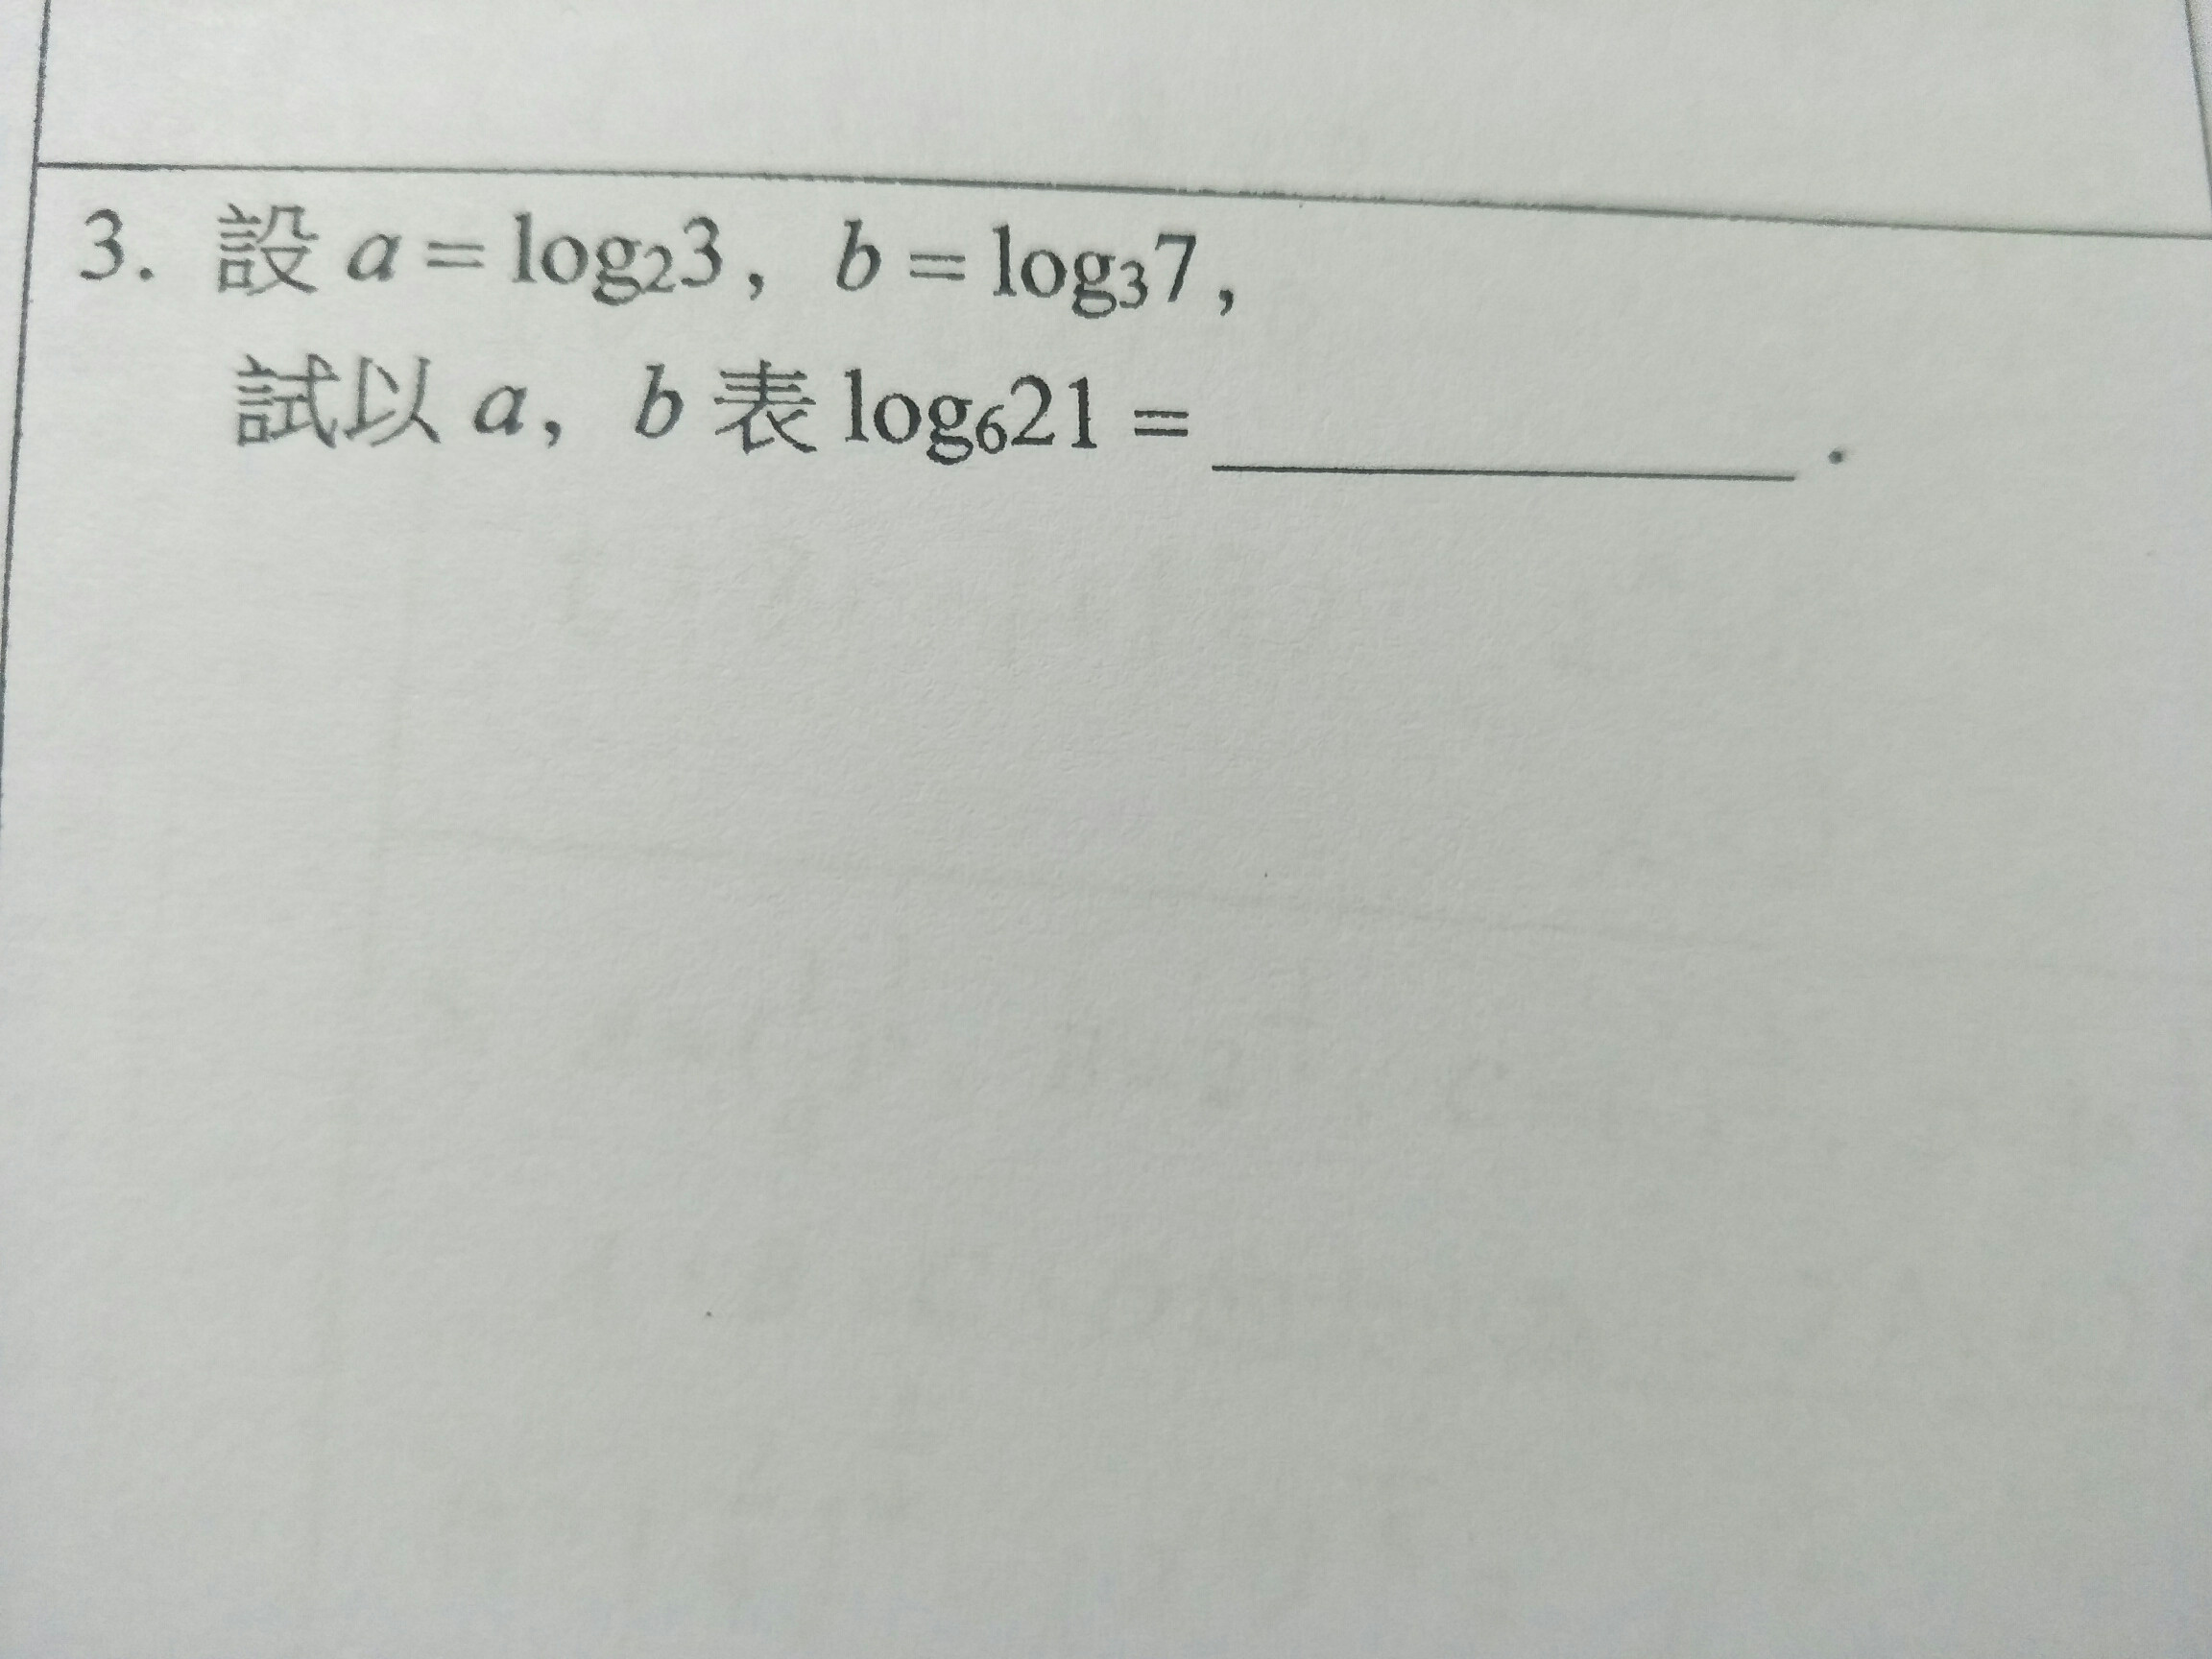 3. 設 a = log₂3，b = log₃7，
試以 a，b 表 log₆21 = ____________ .